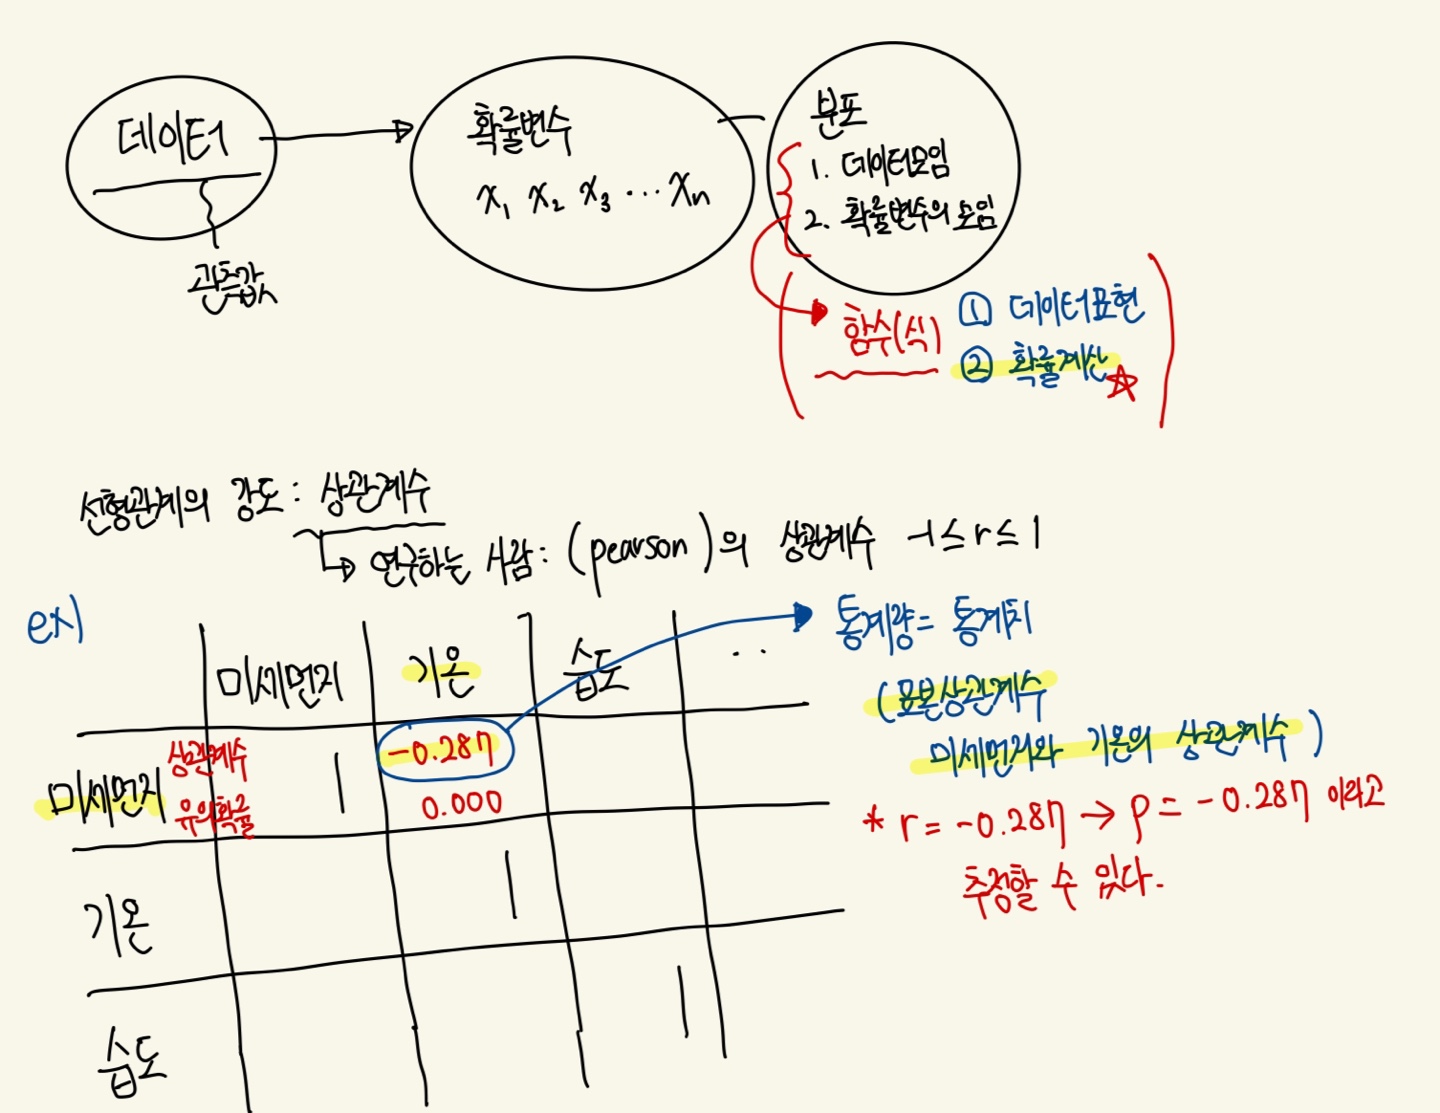 데이터
관측값
확률변수
x₁ x₂ x₃ … xₙ
분포
1. 데이터모임
2. 확률변수의 모임
함수(식)
① 데이터표현
② 확률계산
선형관계의 강도 : 상관계수
연구하는 사람 : (pearson)의 상관계수 -1 ≤ r ≤ 1
ex)
미세먼지 기온 습도 ..
미세먼지 상관계수 1 -0.287
유의확률 0.000
기온 1
습도 1
통계량 = 통계치
(표본상관계수
미세먼지와 기온의 상관계수)
* r = -0.287 → ρ = -0.287 이라고
추정할 수 있다.